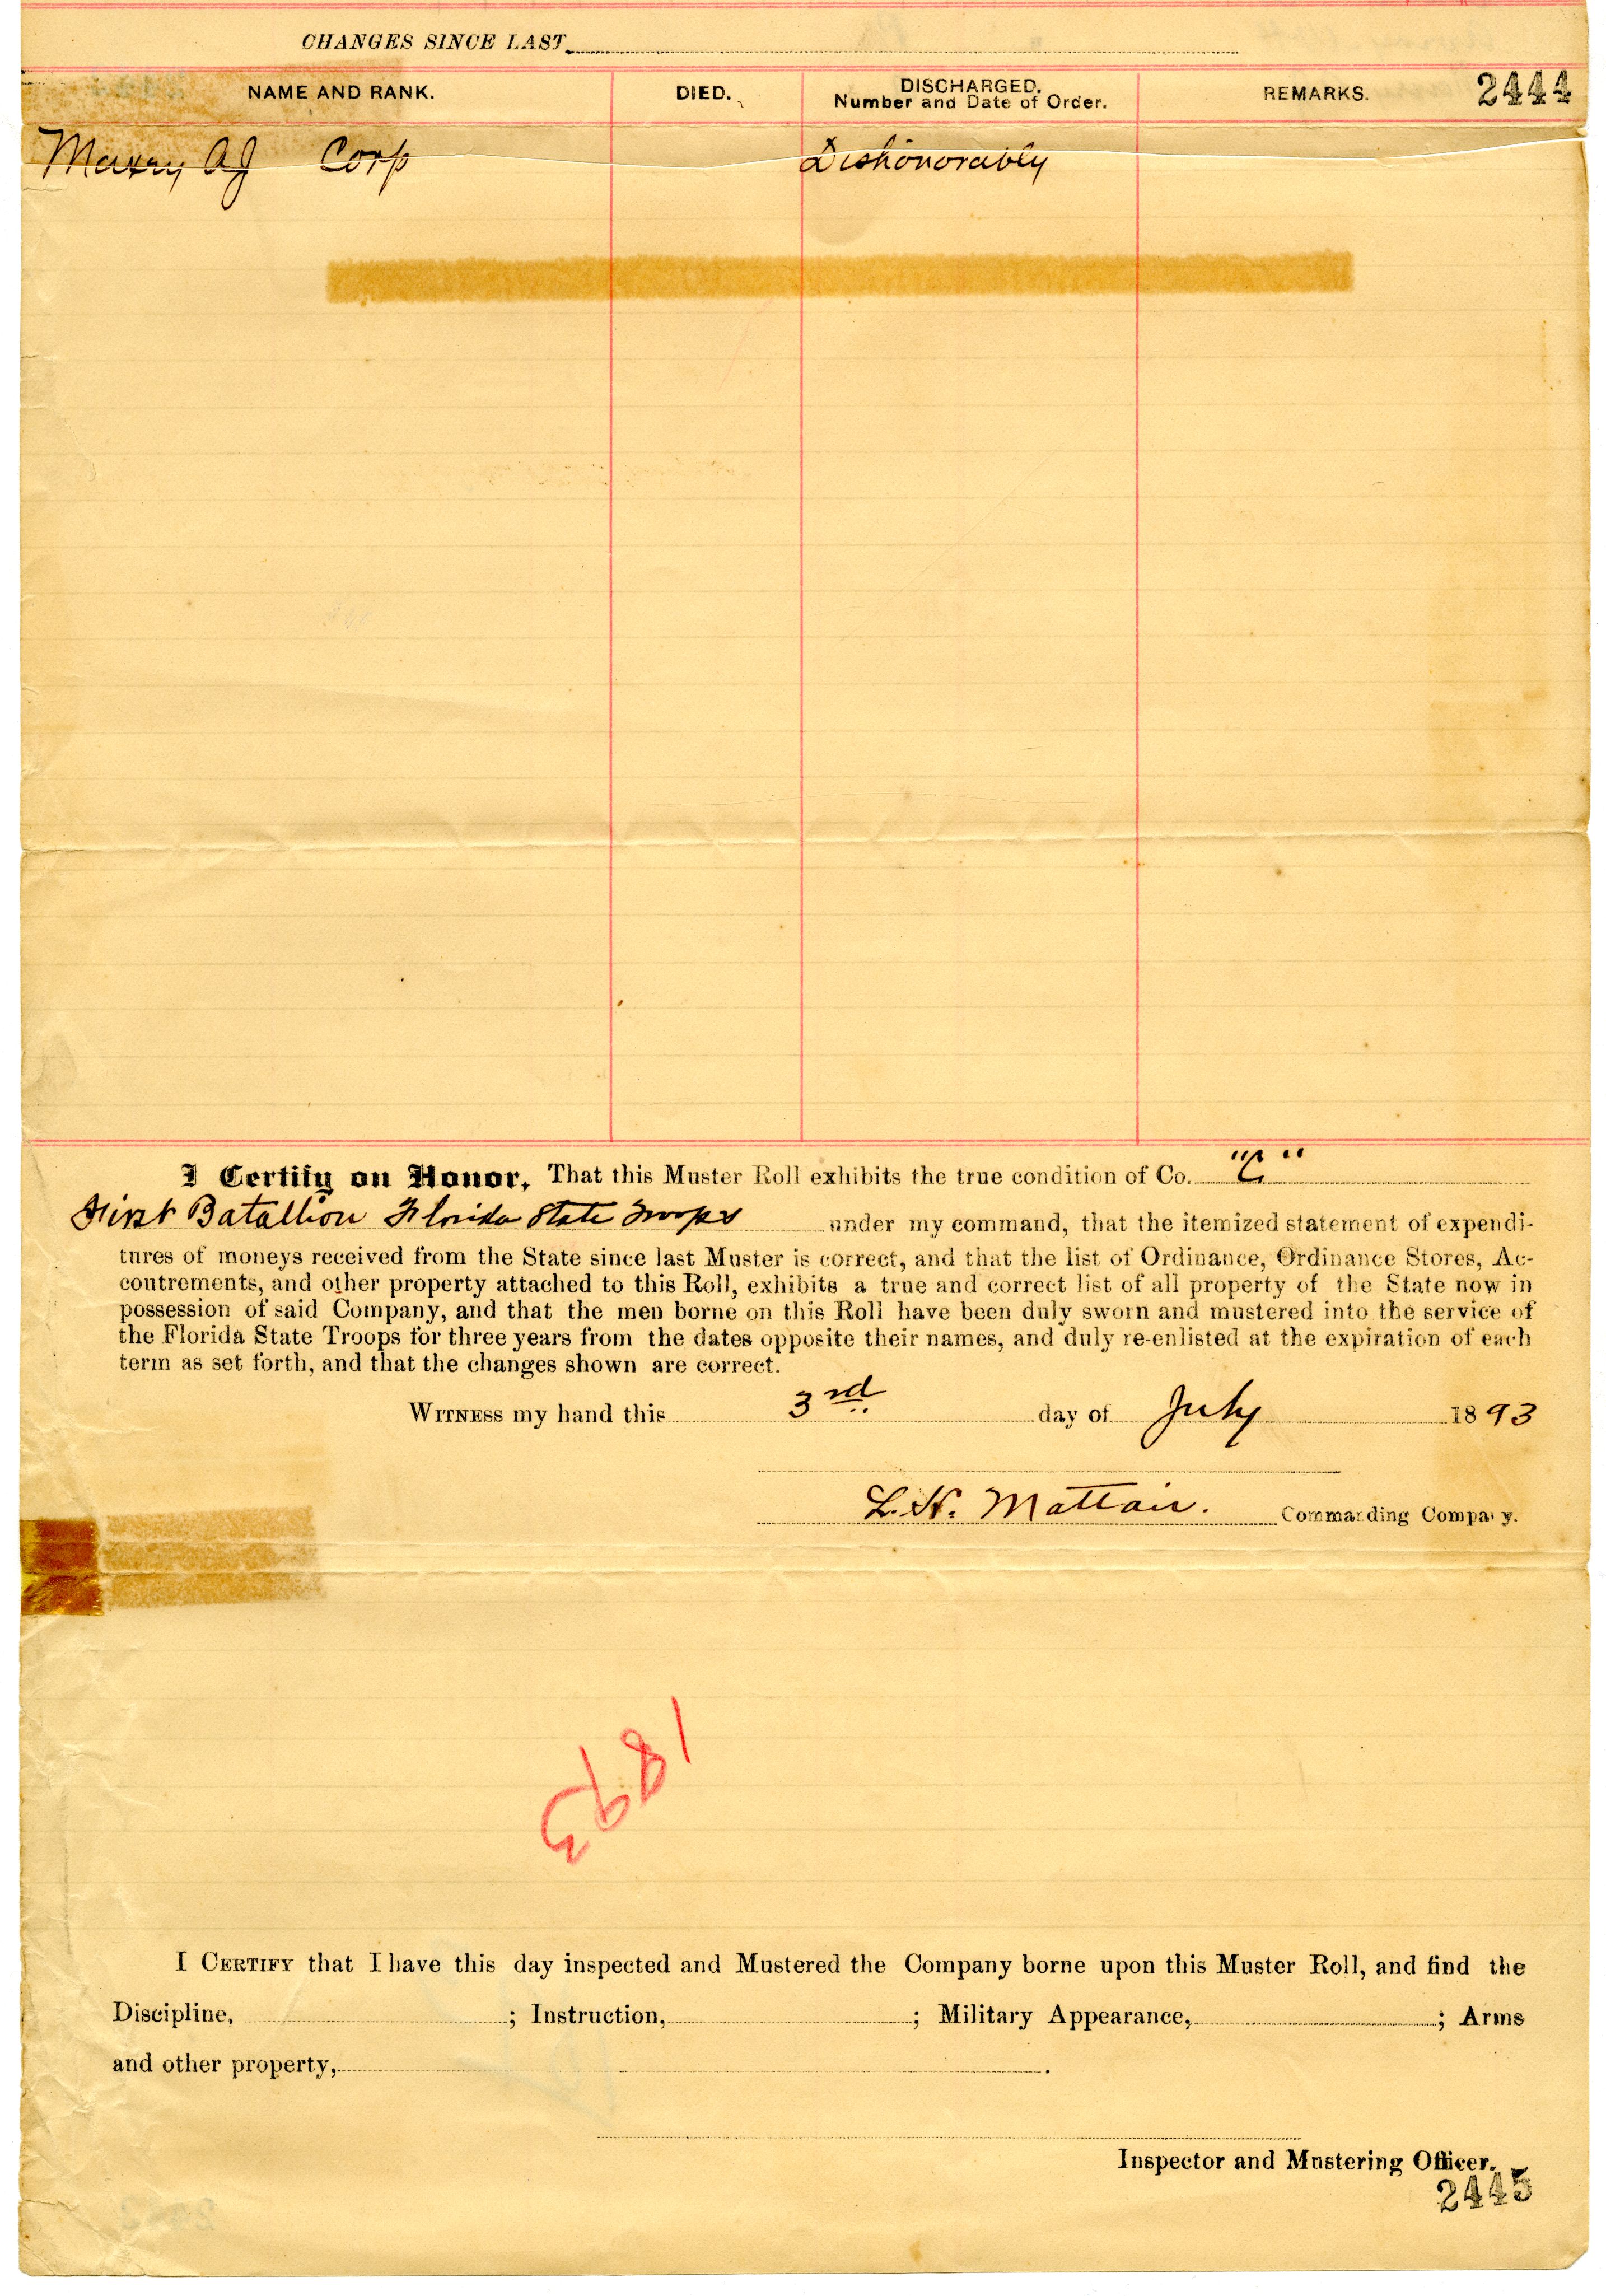 CHANGES SINCE LAST
NAME AND RANK. DIED. DISCHARGED. Number and Date of Order. REMARKS. 2444
Maxey A J Corp Dishonorably
I Certify on Honor, That this Muster Roll exhibits the true condition of Co. "C"
First Batallion Florida State Troops under my command, that the itemized statement of expendi-
tures of moneys received from the State since last Muster is correct, and that the list of Ordinance, Ordinance Stores, Ac-
coutrements, and other property attached to this Roll, exhibits a true and correct list of all property of the State now in
possession of said Company, and that the men borne on this Roll have been duly sworn and mustered into the service of
the Florida State Troops for three years from the dates opposite their names, and duly re-enlisted at the expiration of each
term as set forth, and that the changes shown are correct.
WITNESS my hand this 3rd day of July 1893
L. H. Mattair. Commanding Company.
1893
I CERTIFY that I have this day inspected and Mustered the Company borne upon this Muster Roll, and find the
Discipline, ; Instruction, ; Military Appearance, ; Arms
and other property, .
Inspector and Mustering Officer.
2445